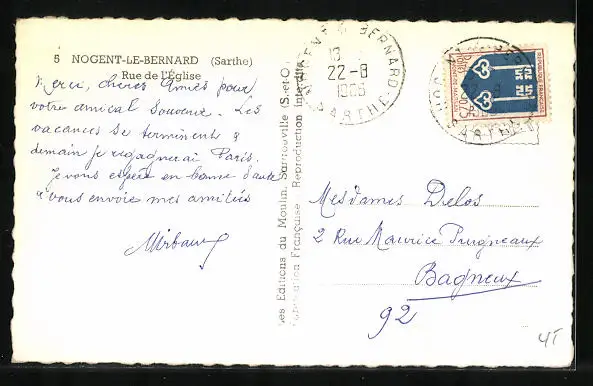 5 NOGENT-LE-BERNARD (Sarthe)
Rue de l'Église
Merci, chères Amies pour
votre amical souvenir. Les
vacances se terminent &
demain je regagnerai Paris.
Je vous espère en bonne santé
& vous envoie mes amitiés
Les Editions du Moulin, Sartrouville (S.-et-O.)
Fabrication Française Reproduction Interdite
NOGENT LE BERNARD
13
22-8
SARTHE
REPUBLIQUE FRANÇAISE
SARTHE
Mesdames Delos
2 Rue Maurice Puigneaux
Bagneux
92